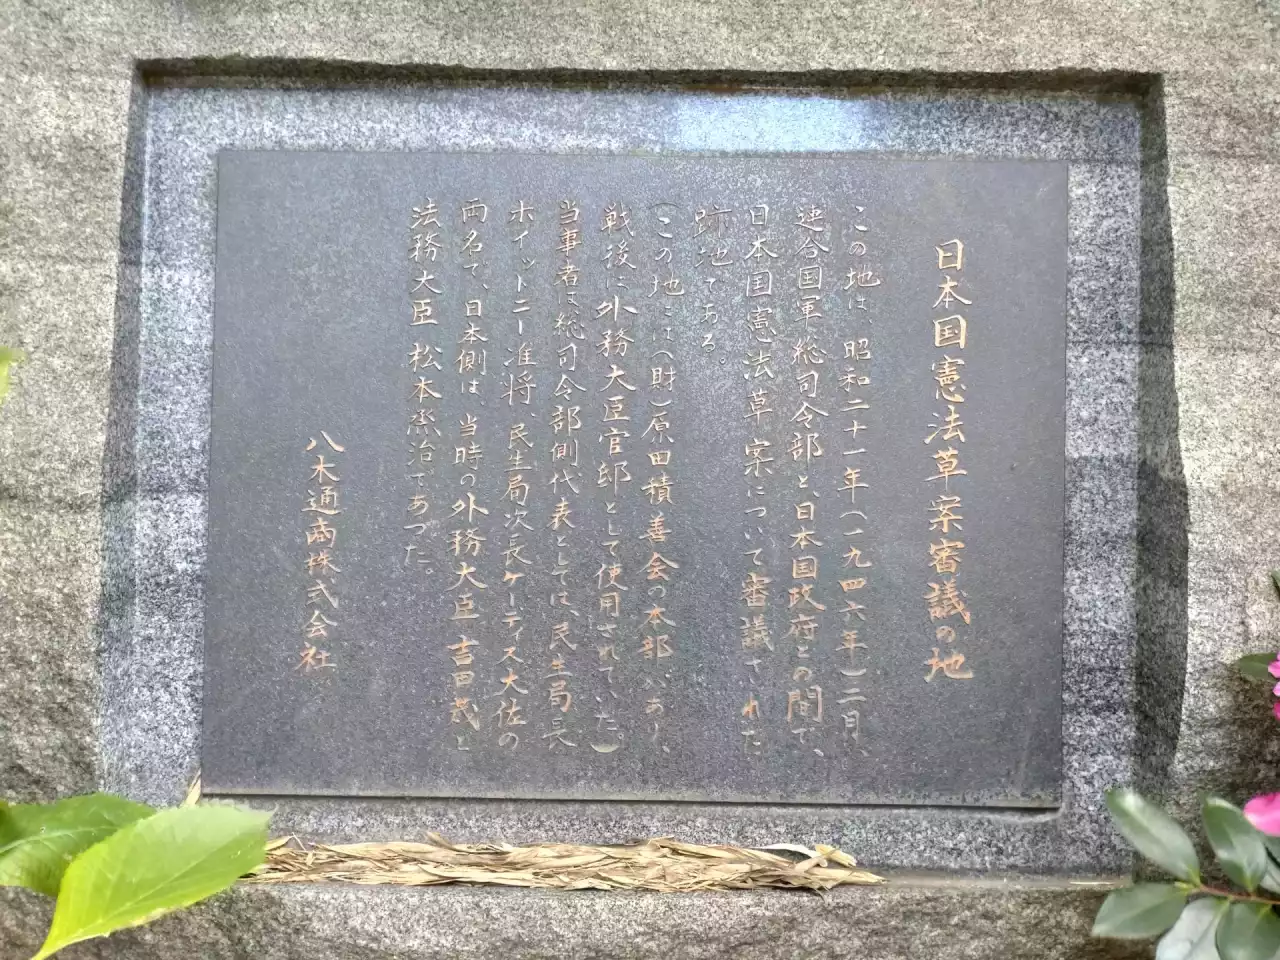 日本国憲法草案審議の地
この地は、昭和二十一年(一九四六年)二月、
連合国軍総司令部と、日本国政府との間で、
日本国憲法草案について審議された
跡地である。
(この地には(財)原田積善会の本部があり、
戦後に外務大臣官邸として使用されていた。)
当事者は、総司令部側代表としては、民生局長
ホイットニー准将、民生局次長ケーディス大佐の
両名で、日本側は、当時の外務大臣 吉田茂と
法務大臣 松本烝治であつた。
八木通商株式会社